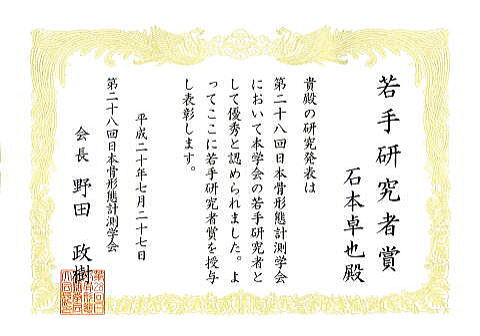 若手研究者賞
石本卓也殿
貴殿の研究発表は
第二十八回日本骨形態計測学会
において本学会の若手研究者と
して優秀と認められました。よ
ってここに若手研究者賞を授与
し表彰します。
平成二十年七月二十七日
第二十八回日本骨形態計測学会
会長 野田 政樹